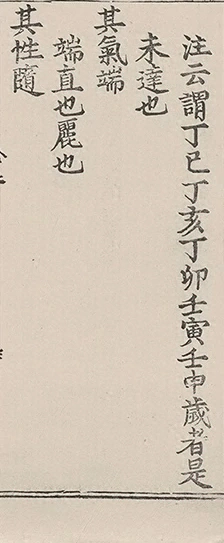 注云謂丁巳丁亥丁卯壬寅壬申歲者是
未達也
其氣端
端直也麗也
其性隨